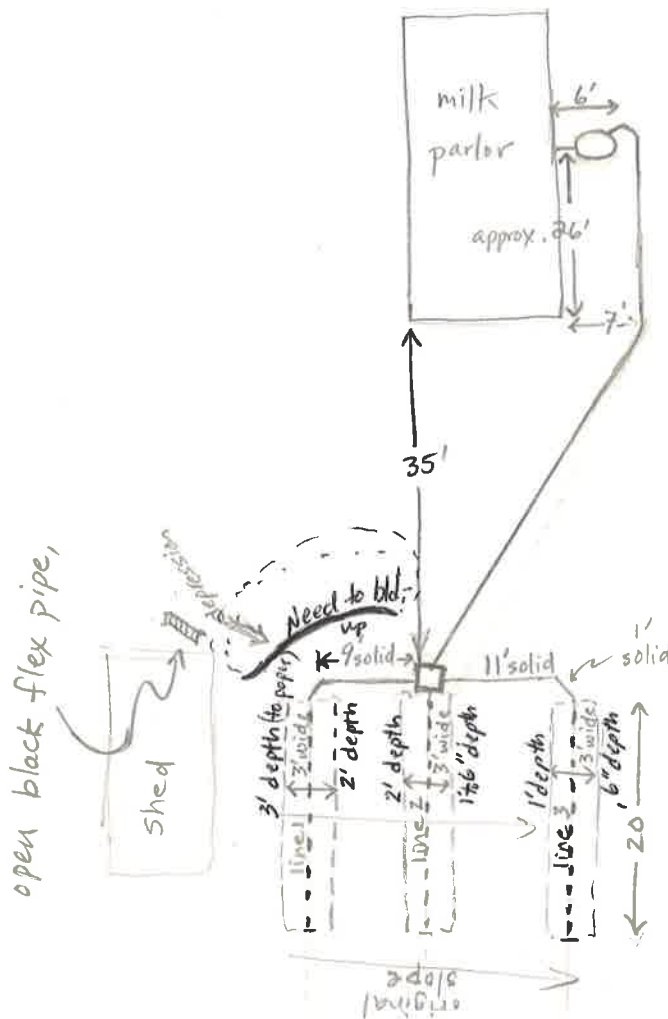 milk
parlor
6'
approx. 26'
7'
35'
open black flex pipe,
depression
Need to bld.
up
9 solid
11' solid
1'
solid
shed
3' depth (to paper)
3' wide
2' depth
line 1
2' depth
3' wide
1' 6" depth
line 2
1' depth
3' wide
6" depth
line 3
20'
original
slope